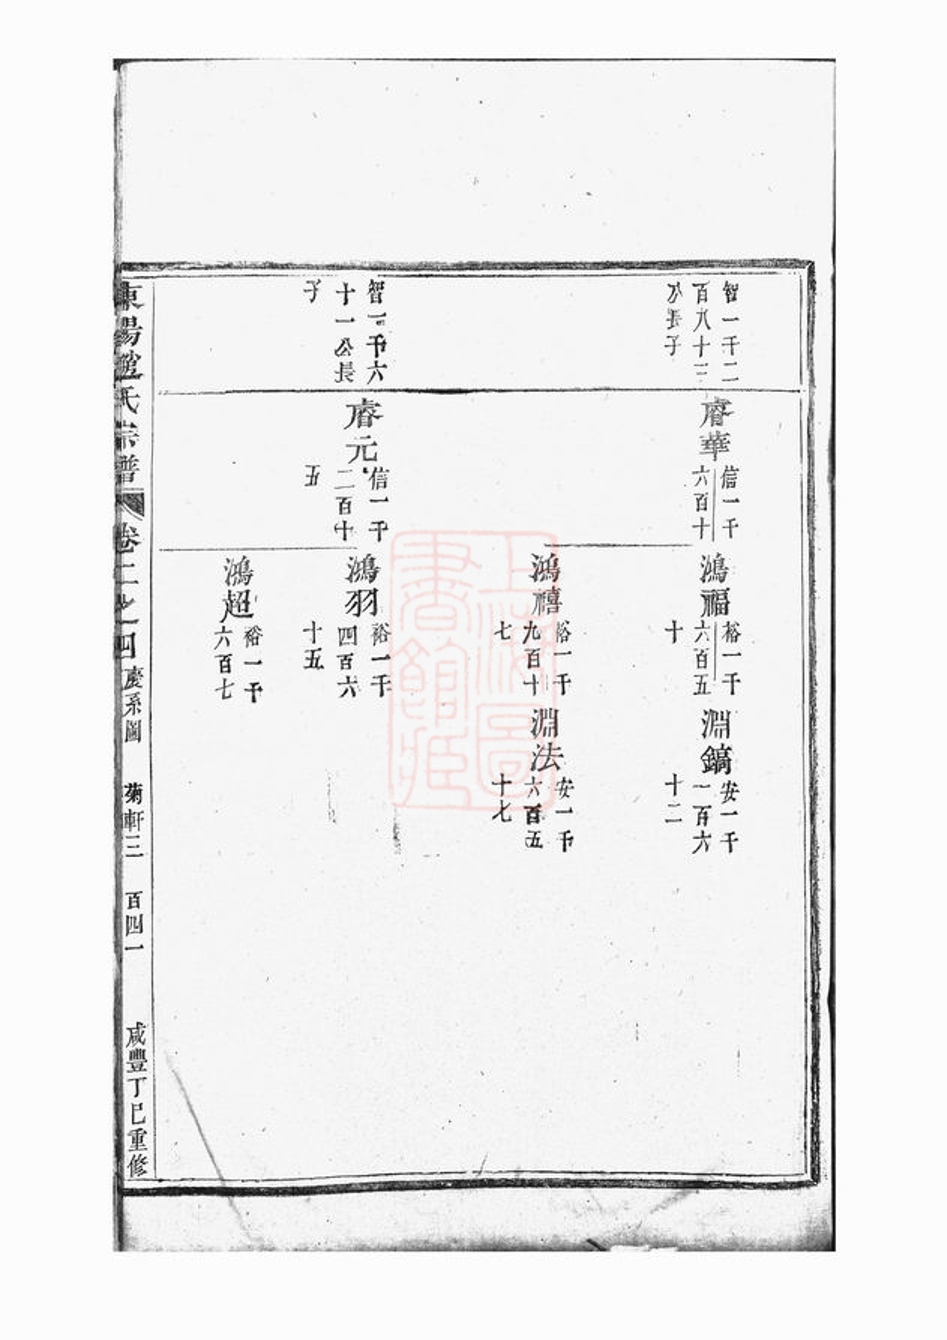 智一千二
百八十三
公長子
睿華
信一千
六百十
鴻福
裕一千
六百五
十
淵鎬
安一千
一百六
十二
鴻禧
裕一千
九百十
七
淵法
安一千
六百五
十七
智一千六
十一公長
子
睿元
信一千
二百十
五
鴻羽
裕一千
四百六
十五
鴻超
裕一千
六百七
東陽趙氏宗譜
卷二之四
慶系圖
菊軒三
百四一
咸豐丁巳重修
上海圖書館藏